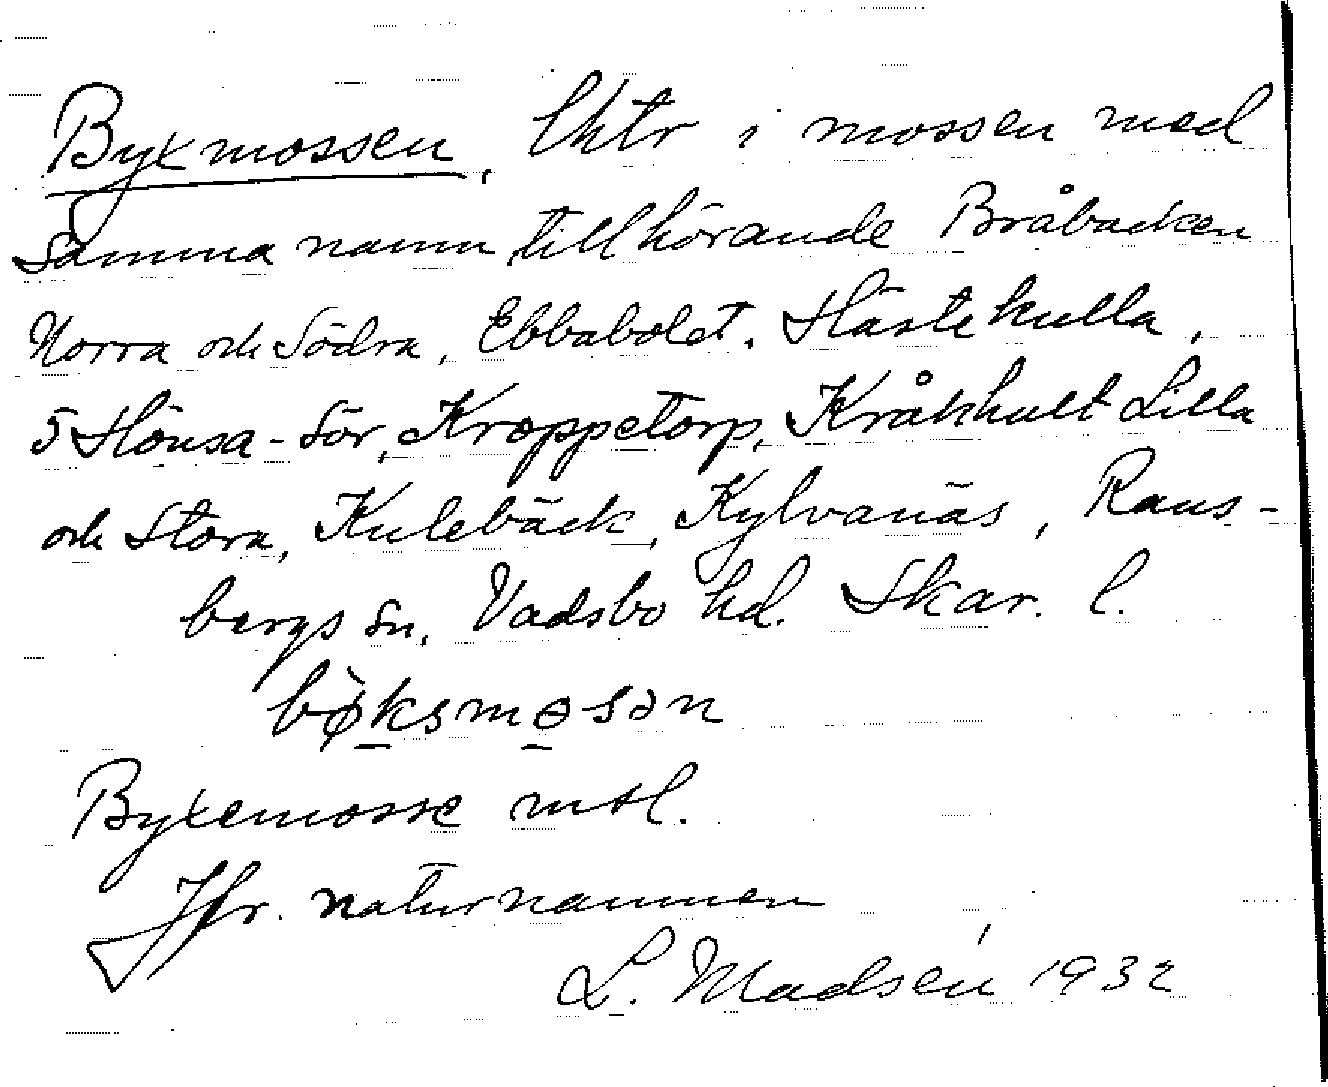 Byxmossen, lhtr i mossen med
samma namn, tillhörande Bråbacken
Norra och Södra, Ebbabolet. Hästekulla,
5 Hönsa-Sör, Kroppetorp, Kråkhult Lilla
och Stora, Kulebäck, Kylvanäs, Rans-
bergs sn, Vadsbo hd. Skar. l.
bø̀ksmosən
Byxemosse mtl.
Jfr. naturnamnen
L. Madsén 1932